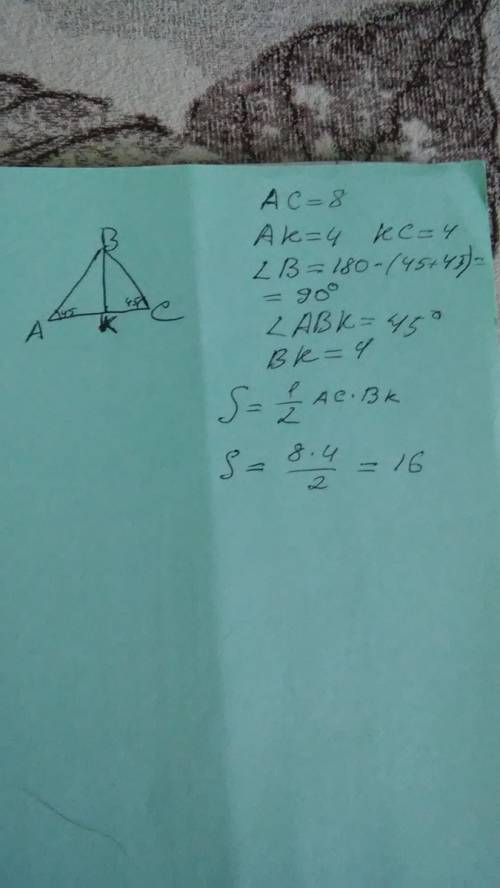 B
45
45
A
K
C
AC = 8
AK = 4 KC = 4
∠B = 180 - (45 + 45) =
= 90°
∠ABK = 45°
BK = 4
S = 1/2 AC · BK
S = 8 · 4 / 2 = 16